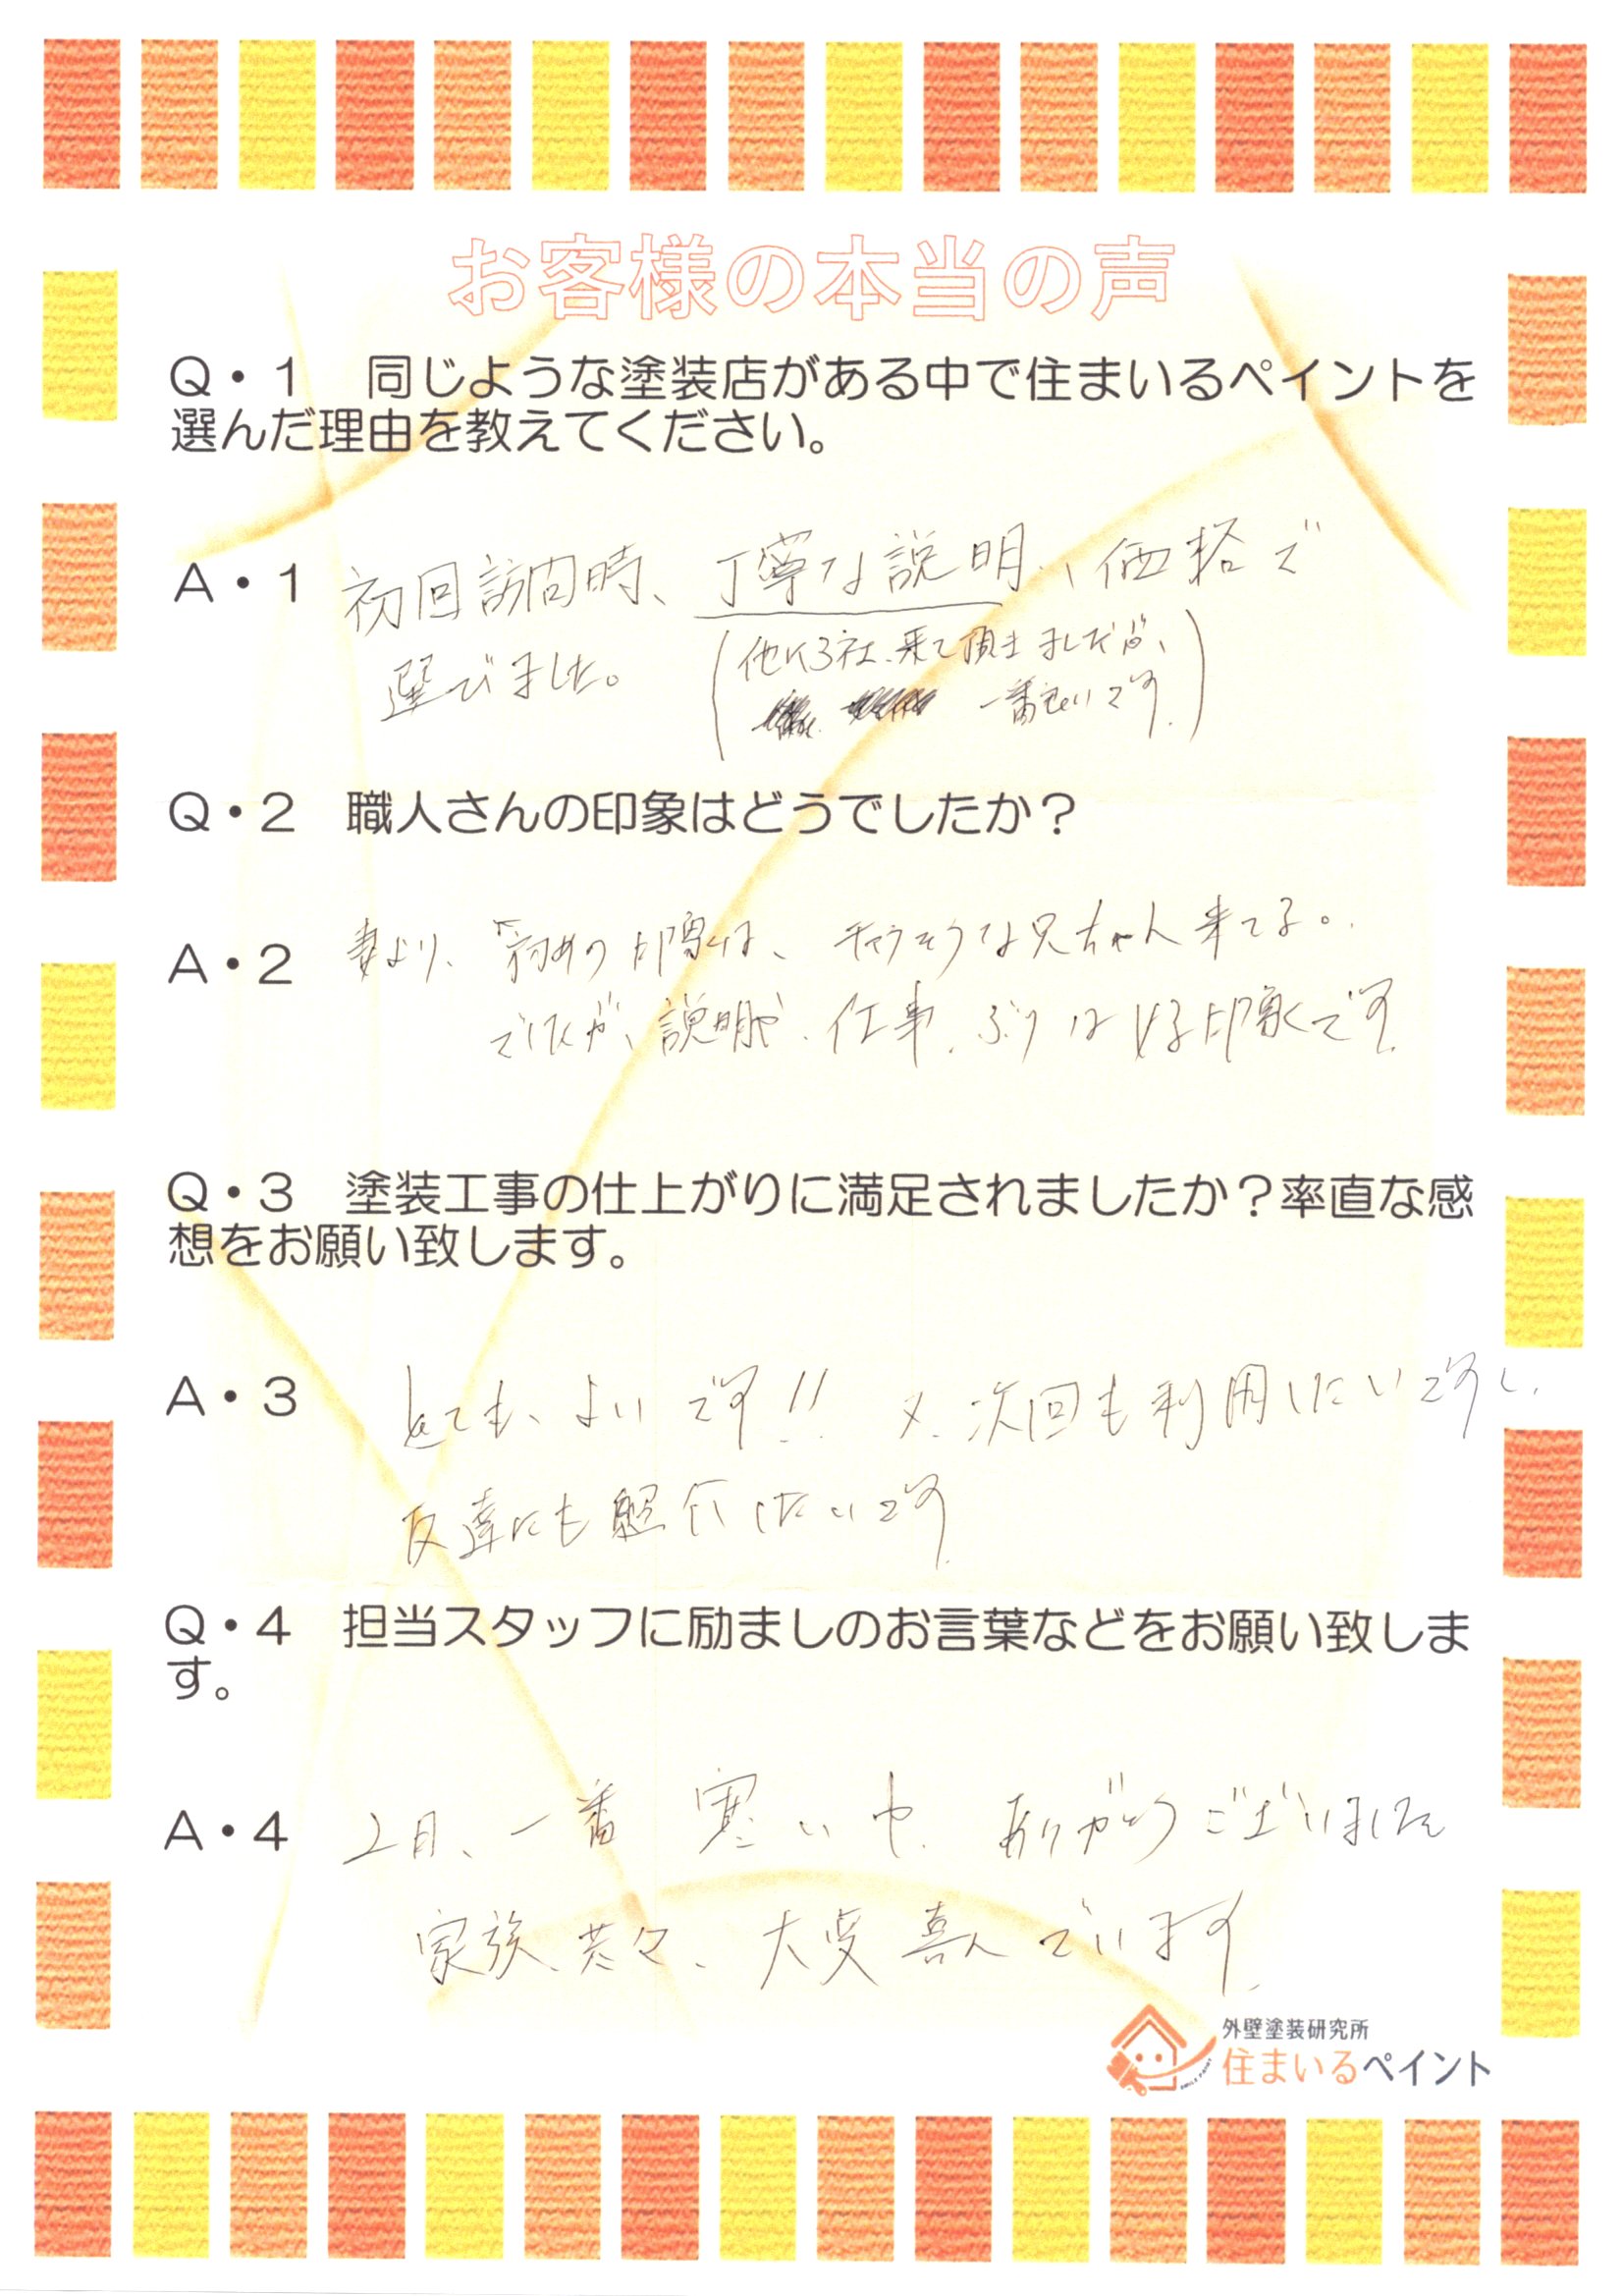 お客様の本当の声
Q・1 同じような塗装店がある中で住まいるペイントを
選んだ理由を教えてください。
A・1 初回訪問時、丁寧な説明、価格で
選びました。
(他に3社、来て頂きましたが、
一番良いです。)
Q・2 職人さんの印象はどうでしたか？
A・2 妻より、初めの印象は、チャラそうな兄ちゃん来てる。
でしたが、説明や、仕事、ぶりは好印象です。
Q・3 塗装工事の仕上がりに満足されましたか？率直な感
想をお願い致します。
A・3 とても、よいです!! 又、次回も利用したいですし、
友達にも紹介したいです。
Q・4 担当スタッフに励ましのお言葉などをお願い致しま
す。
A・4 2月、一番 寒い中、ありがとうございました
家族、共々、大変喜んでいます。
外壁塗装研究所
住まいるペイント